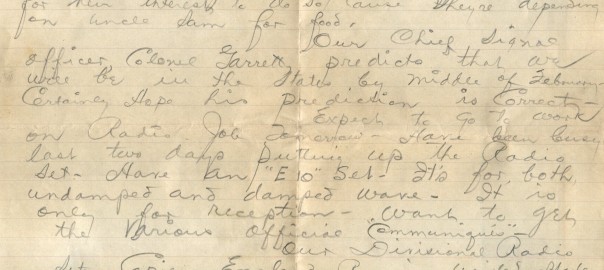 for their interest to do so cause they're depending
on Uncle Sam for food.
Our Chief Signal
officer Colonel Garrett, predicts that we
will be in the States by middle of February
Certainly Hope his prediction is correct -
Expect to go to work
on Radio Job Tomorrow - Have been busy
last two days putting up the Radio
Set - Have an "E10" Set - It's for both
undamped and damped wave - It is
only for reception - want to get
the Various Official Communiques" -
Our Divisional Radio